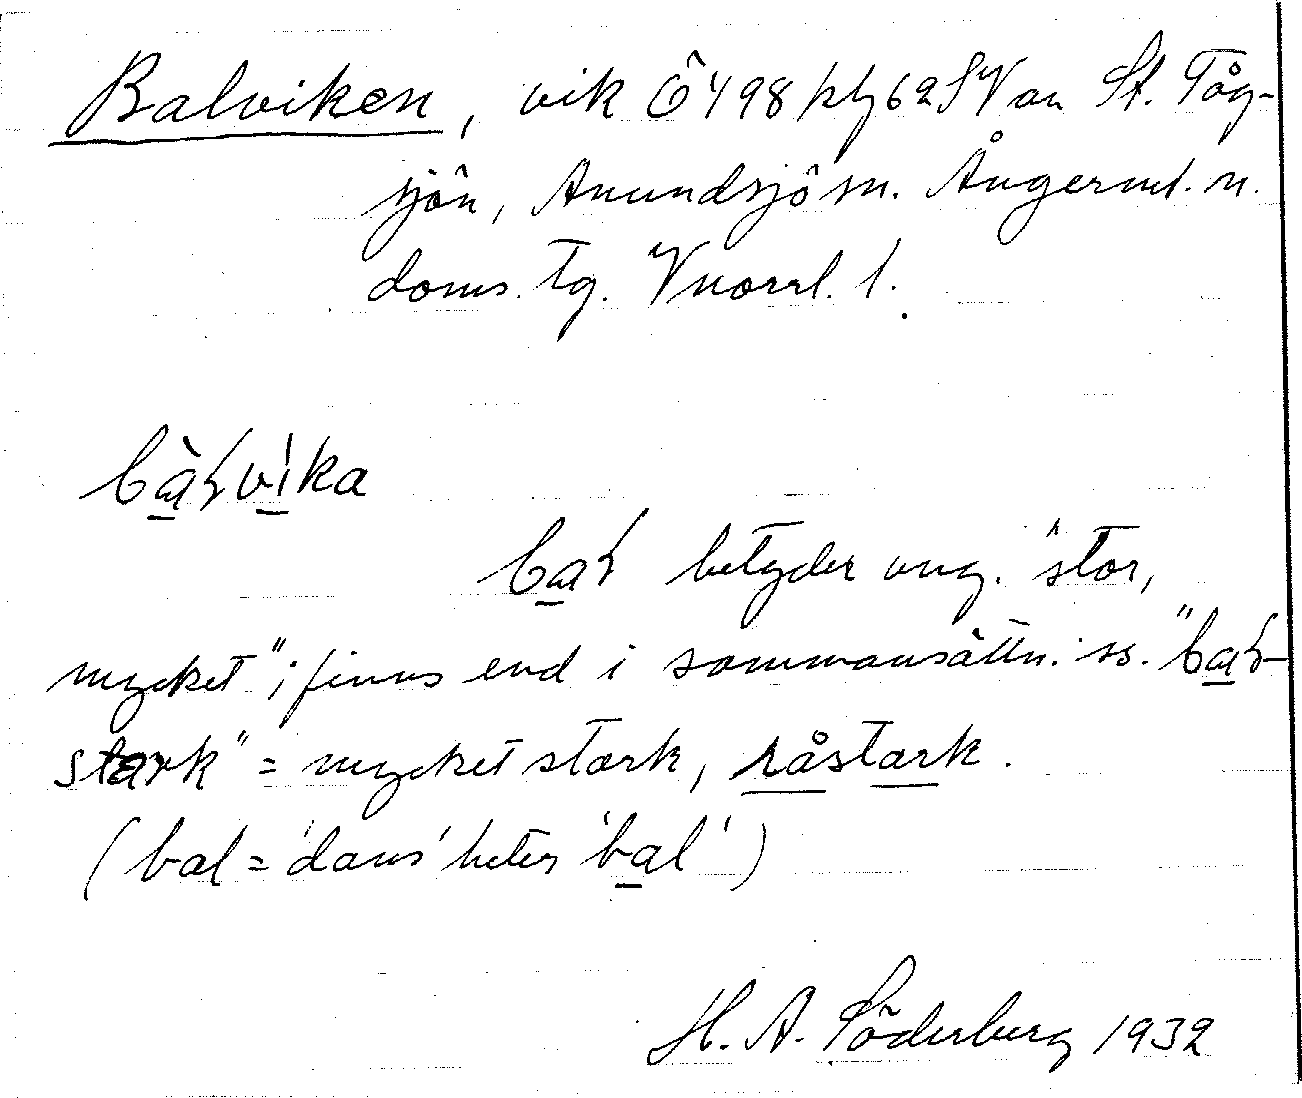 Balviken, vik Ö 498 kbg 62 SV om St. Tåg-
sjön, Anundsjö sn. Ångerml. n.
doms. tg. Vnorrl. l.
bàɽvìka
baɽ betyder ung. "stor,
mycket"; finns end i sammansättn. ss. "baɽ-
stark" = mycket stark, råstark.
(bal = 'dans' heter 'bal')
H. A. Söderberg 1932